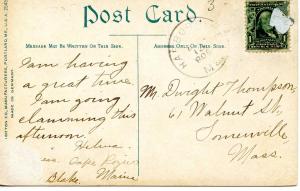 3
Post Card.
MESSAGE MAY BE WRITTEN ON THIS SIDE.
ADDRESS ONLY ON THIS SIDE.
I am having
a great time.
I am going
clamming this
afternoon.
Helena
Cape Rozier
Blake. Maine
Mr. Dwight Thompson,
61 Walnut St,
Somerville
Mass.